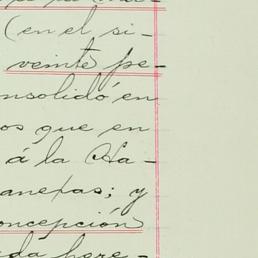 (en el si-
veinte pe-
onsolidó en
os que en
á la Ha-
anexas; y
oncepción
da here-